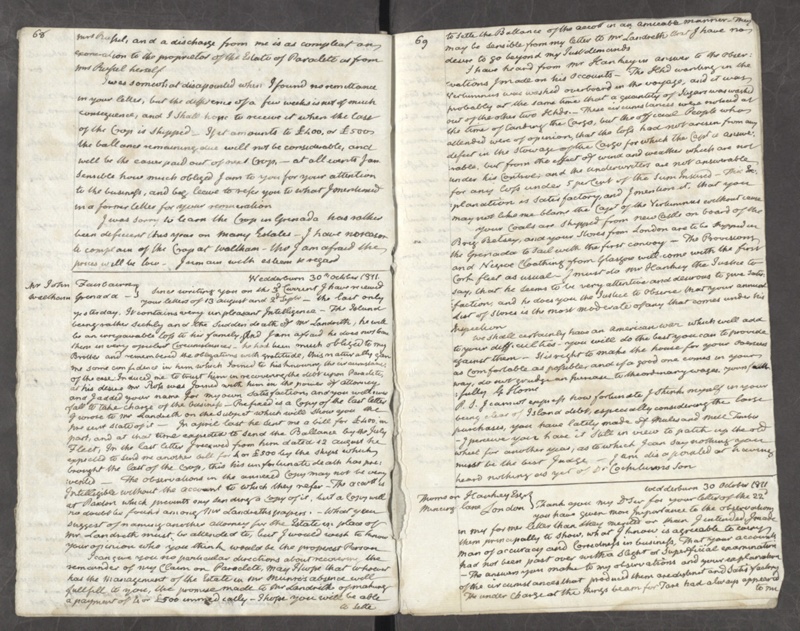 68
Mrs Persel, and a discharge from me is as compleat an
exoneration to the proprietor of the Estate of Paraclete as from
Mrs Persel herself
I was somewhat disapointed when I found no remittance
in your letter, but the difference of a few weeks is not of much
consequence, and I shall hope to receive it when the last
of the Crop is shipped. If it amounts to £400, or £500
the ballance remaining due will not be considerable, and
will be the easier paid out of next Crop, — at all events I am
sensible how much obliged I am to you for your attention
to the business, and beg leave to refer you to what I mentioned
in a former letter for your renumeration
I was sorry to learn the Crop in Grenada has rather
been deficient this year on many Estates — I have no reason
to complain of the Crop at Waltham — tho I am afraid the
prices will be low. I remain with esteem & regard
Wedderburn 30th octobr 1811
Mr John Fairbairn
Waltham Grenada — Since writing you on the 3d Current I have received
your letters of 13 august and 2 Septr — the last only
yesterday. It contains very unpleasant Intelligence — The Island
being rather sickly and the Sudden death of Mr Landreth, he will
be an irreparable loss to his family, and I am afraid he does not leave
them in very opulent Circumstances, he had been much obliged to my
Brother and remembered the obligations with gratitude, this naturally gave
me some confidence in him which Joined to his knowing the circumstances
of the case Induced me to trust him in recovering the debt upon Paraclete,
at his desire Mr Ross was Joined with him in the power of attorney
and I added your name for my own Satisfaction, and you will now
fall to take charge of the business. Prefixed is a Copy of the last letter
I wrote to Mr Landreth on the Subject which will show you the
present state of it — In april last he sent me a bill for £400, in
part, and at that time expected to send the Ballance by the July
Fleet, In the last letter I received from him dated 12 august he
expected to send me another bill for 4 or £500 by the ships which
brought the last of the Crop, this his unfortunate death has pre
vented — The observations in the annexed Copy may not be very
Intelligible without the account to which they refer — The accot is
at Paxton which prevents my sending a Copy of it, but a Copy will
no doubt be found among Mr Landreths papers. — What you
suggest of naming another attorney for the Estate in place of
Mr. Landreth must be attended to, but I would wish to know
your opinion who you think would be the properest Person
I can give you no particular directions about recovering the
remainder of my Claim on Paraclete, May I hope that whoever
has the management of the Estate in Mr Munro's absence will
fullfill to you, the promise made to Mr Landreth of making
a payment of 4 or £500 immediately — I hope you will be able
to settle
69
to settle the Ballance of the accot in an amicable manner — You
may be sensible from my letter to Mr Landreth that I have no
desire to go beyond my Just demands
I have heard from Mr Hankey in answer to the obser:
vations I made on his accounts — The Hhd wanting in the
Vertumnus was washed overboard in the voyage, and it was
probably at the same time that a quantity of Sugar was washed
out of the other two Hhds. — These circumstances were noticed at
the time of landing the Cargo, but the official People who
attended were of opinion, that the loss had not arisen from any
defect in the Stowage of the Cargo for which the Capt is answer:
nable, but from the effect of wind and weather which are not
under his Controul and the Underwriters are not answerable
for any loss under 5 per Cent of the Sum Insured. This Ex:
planation is Satisfactory, and I mention it, that you
may not like me blame the Capt of the Vertumnus without cause
Your Coals are Shipped from New Castle on board of the
Brig Betsey, and your Stores from London are to be shipped in
the Grenada to Sail with the first convoy — The Provisions
and Negroe Cloathing from Glasgow will come with the first
Cork fleet as usual. I must do Mr Hankey the Justice to
say, that he seems to be very attentive and desirous to give Satis:
faction, and he does you the Justice to observe that your annual
list of Stores is the most moderate of any that comes under his
Inspection
We shall certainly have an american war which will add
to your difficulties — you will do the best you can to provide
against them — It is right to make the house for your overseer
as comfortable as possible and if a good one comes in your
way, do not grudge an increase to the ordinary wages. yours faith:
:fully G Home
P.S. I cannot express how fortunate I think myself in your
being clear of Island debt, especially considering the large
purchases you have lately made of Mules and Mill Work
— I perceive you have it still in view to patch up the old
wheel for another year, as to which I can say nothing, you
must be the best Judge — I am disapointed at having
heard nothing as yet of Dr Cochburns Son
Wedderburn 30 October 1811
Thomson Hankey Esqr
Mincing Lane London — Thank you my Dr Sir for your letter of the 22d
you have given more Importance to the observations
in my former letter than they merited or than I intended, I made
them principally to show, what I know is agreeable to every
man of accuracy and Correctness in business, That your accounts
had not been past over with a slight or superficial examination
— The answers you make to my observations and your explanation
of the circumstances that produced them are distinct and Satisfactory
The under Charge at the Kings beam for Tare had always appeared
to me